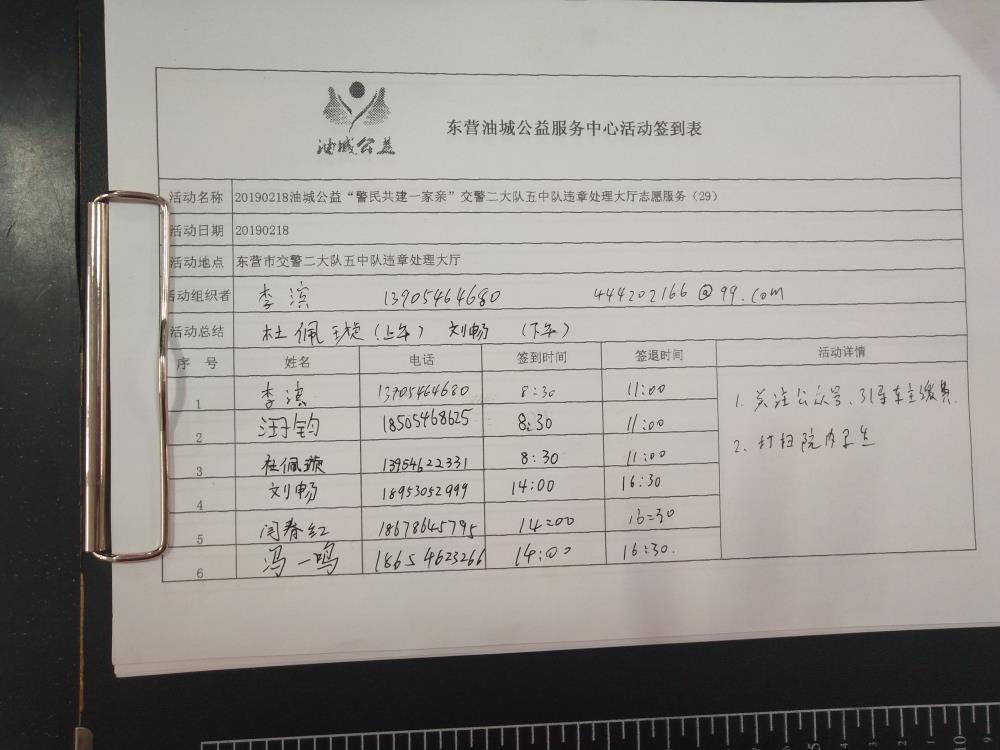 油城公益
东营油城公益服务中心活动签到表
活动名称 20190218油城公益“警民共建一家亲”交警二大队五中队违章处理大厅志愿服务（29）
活动日期 20190218
活动地点 东营市交警二大队五中队违章处理大厅
活动组织者 李滨 13905464680 444202166@qq.com
活动总结 杜佩璇（上午） 刘畅 （下午）
序 号 姓名 电话 签到时间 签退时间 活动详情
1 李滨 13905464680 8:30 11:00
2 汪钧 18505468625 8:30 11:00
3 杜佩璇 13954622331 8:30 11:00
4 刘畅 18953052999 14:00 16:30
5 闫春红 18678645795 14:00 16:30
6 冯一鸣 18654623266 14:00 16:30.
1. 关注公众号、引导车主缴费.
2、打扫院内卫生